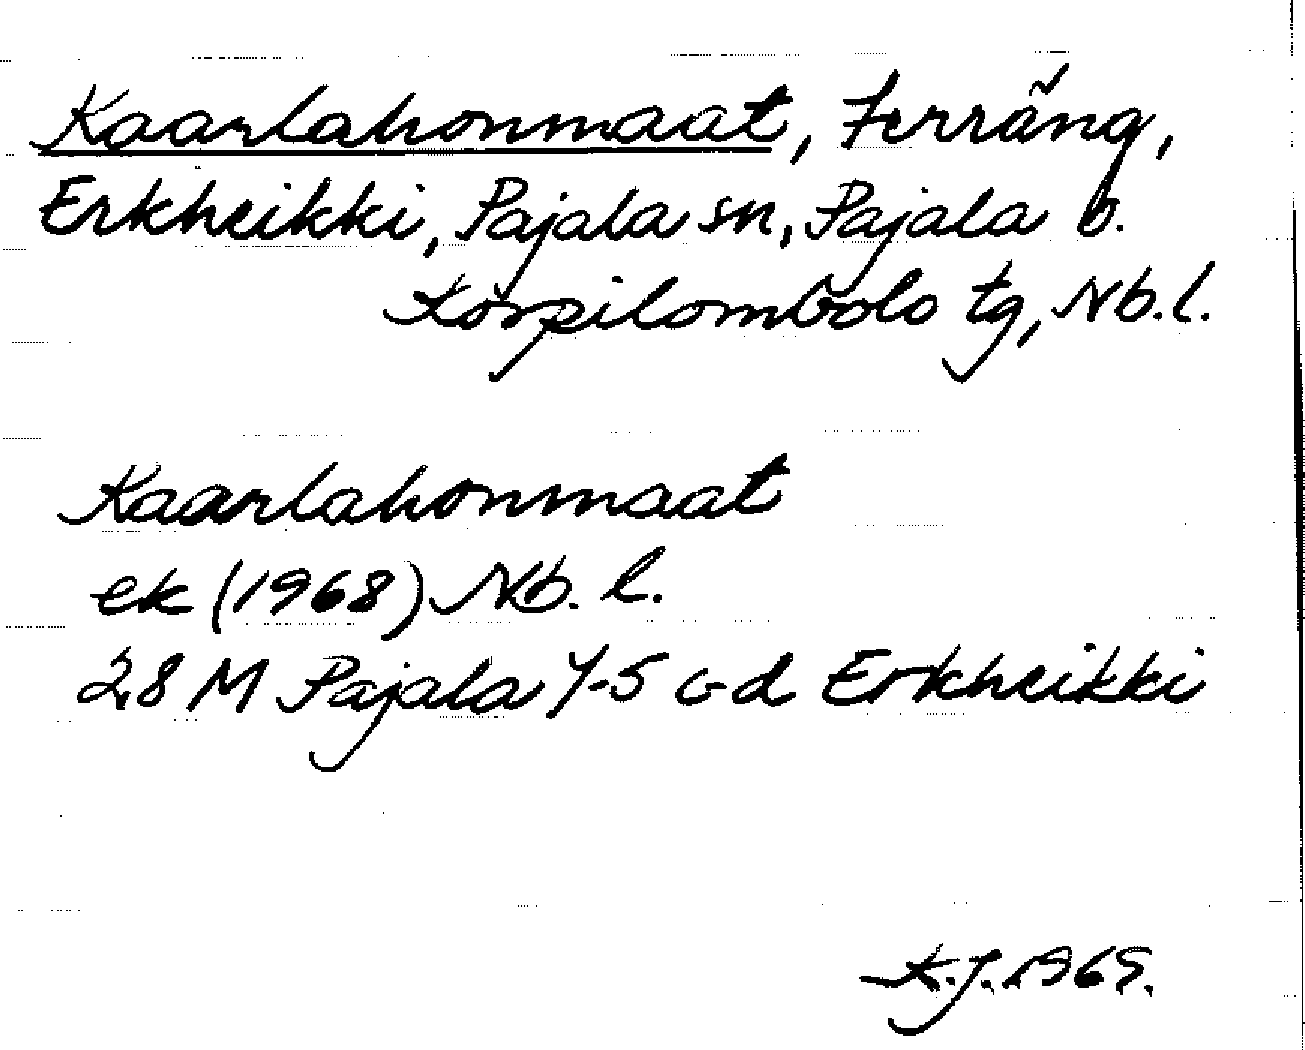 Kaarlahonmaat, Terräng,
Erkheikki, Pajala sn, Pajala o.
Korpilombolo tg, Nb.l.
Kaarlahonmaat
ek (1968) Nb. l.
28 M Pajala 7-5 c-d Erkheikki
K.J. 1969.